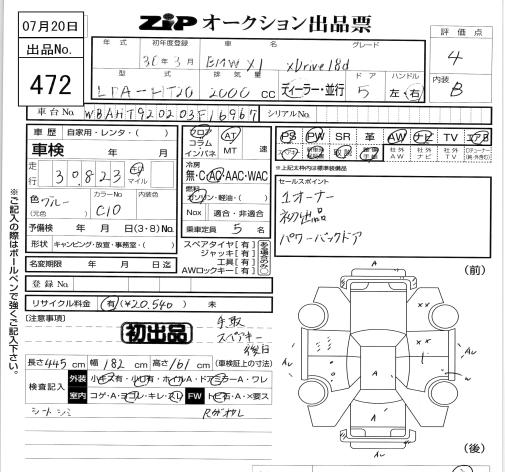 07月20日
ZIP オークション出品票
出品No.
472
評価点
4
内装
B
年式 初年度登録 車名 グレード
30年3月 BMW X1 xDrive18d
型式 排気量 ドア ハンドル
LDA-HT20 2000 cc ディーラー・並行 5 左・右
車台No. WBAHT920203F16967 シリアルNo.
車歴 自家用・レンタ・( )
車検 年 月
走行 30,823 マイル
色 ブルー
(元色)
カラーNo C10
内装色
予備検 年 月 日(3・8)No.
形状 キャンピング・放宣・事務室・( )
名変期限 年 月 日迄
フロア
コラム
インパネ
AT
MT 速
冷房
無・C・AC・AAC・WAC
燃料
ガソリン・軽油・( )
Nox 適合・非適合
乗車定員 5 名
スペアタイヤ[有]
ジャッキ[有]
工具[有]
AWロックキー[有]
PS PW SR 革 AW ナビ TV エアB
社外AW 社外ナビ 社外TV
*上記太枠内は標準装備品
セールスポイント
1オーナー
初出品
パワーバックドア
登録No.
リサイクル料金 有(¥20,540) 未
[注意事項]
初出品
手取
スペアキー
後日
長さ445cm 幅182cm 高さ161cm (車検証上の寸法)
検査記入
外装 小キズ有・小凹有・ホイルA・ドアミラーA・ワレ
室内 コゲ・A・ヨゴレ・キレ・スレ FW トビ石・A・×要ス
シートシミ
Rゲガリ
(前)
(後)
A
A
A
Aw
Aw
Aw
※ご記入の際はボールペンで強くご記入下さい。